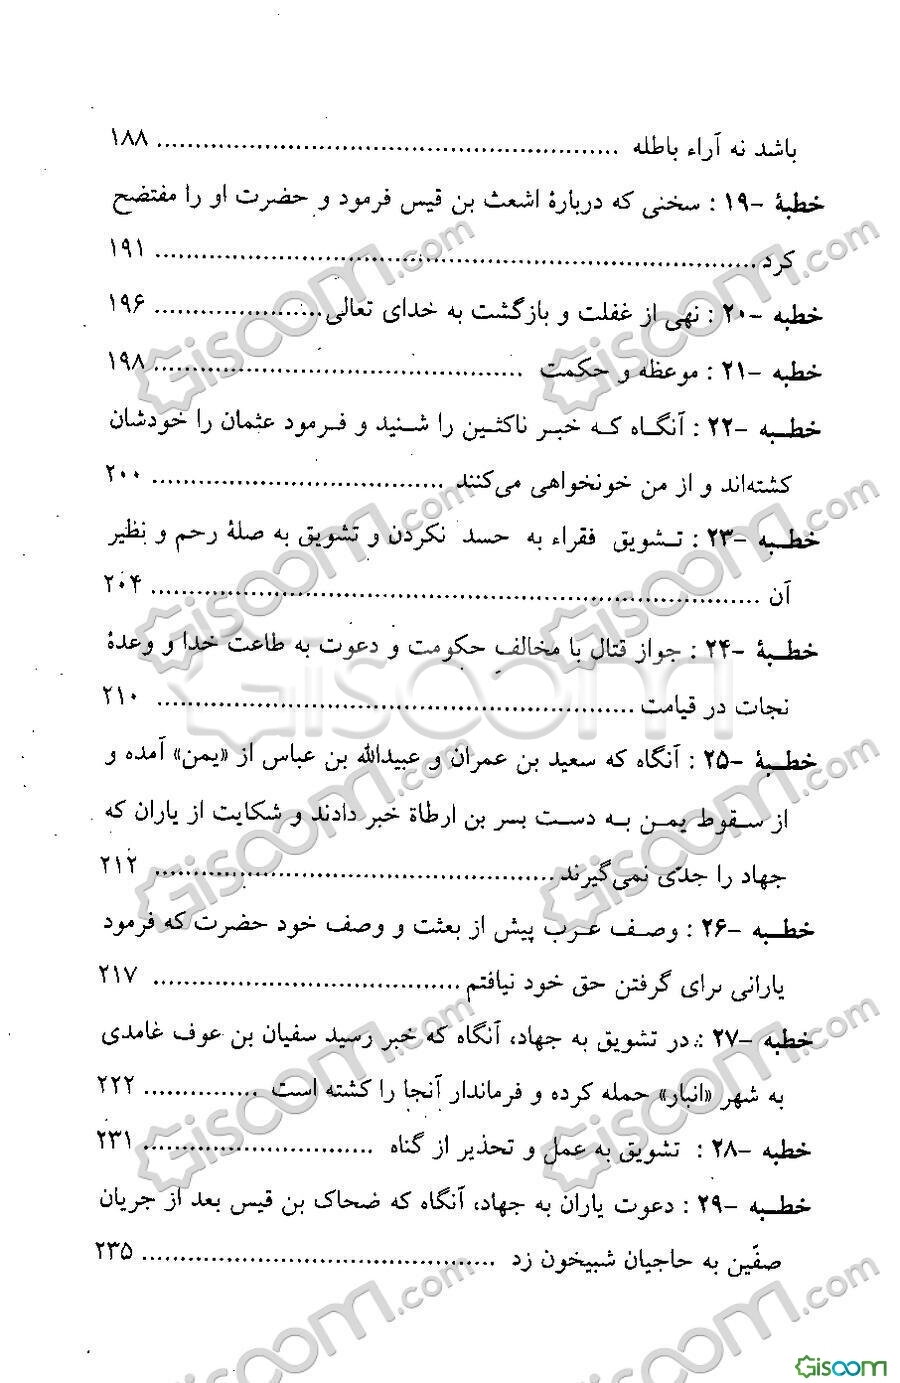 باشد نه آراء باطله ........................................................... ۱۸۸
خطبهٔ -۱۹ : سخنی که دربارهٔ اشعث بن قیس فرمود و حضرت او را مفتضح
کرد ............................................................................. ۱۹۱
خطبه -۲۰ : نهی از غفلت و بازگشت به خدای تعالی ...................... ۱۹۶
خطبه -۲۱ : موعظه و حکمت ................................................ ۱۹۸
خطبه -۲۲ : آنگاه که خبر ناکثین را شنید و فرمود عثمان را خودشان
کشته‌اند و از من خونخواهی می‌کنند ...................................... ۲۰۰
خطبه -۲۳ : تشویق فقراء به حسد نکردن و تشویق به صلهٔ رحم و نظیر
آن .............................................................................. ۲۰۴
خطبهٔ -۲۴ : جواز قتال با مخالف حکومت و دعوت به طاعت خدا و وعدهٔ
نجات در قیامت ............................................................. ۲۱۰
خطبهٔ -۲۵ : آنگاه که سعید بن عمران و عبیدالله بن عباس از «یمن» آمده و
از سقوط یمن به دست بسر بن ارطاة خبر دادند و شکایت از یاران که
جهاد را جدّی نمی‌گیرند .................................................... ۲۱۲
خطبه -۲۶ : وصف عرب پیش از بعثت و وصف خود حضرت که فرمود
یارانی برای گرفتن حق خود نیافتم ........................................ ۲۱۷
خطبه -۲۷ : در تشویق به جهاد، آنگاه که خبر رسید سفیان بن عوف غامدی
به شهر «انبار» حمله کرده و فرماندار آنجا را کشته است ............... ۲۲۲
خطبه -۲۸ : تشویق به عمل و تحذیر از گناه .............................. ۲۳۱
خطبه -۲۹ : دعوت یاران به جهاد، آنگاه که ضحاک بن قیس بعد از جریان
صفّین به حاجیان شبیخون زد .............................................. ۲۳۵
Gisoom.com
Gisoom